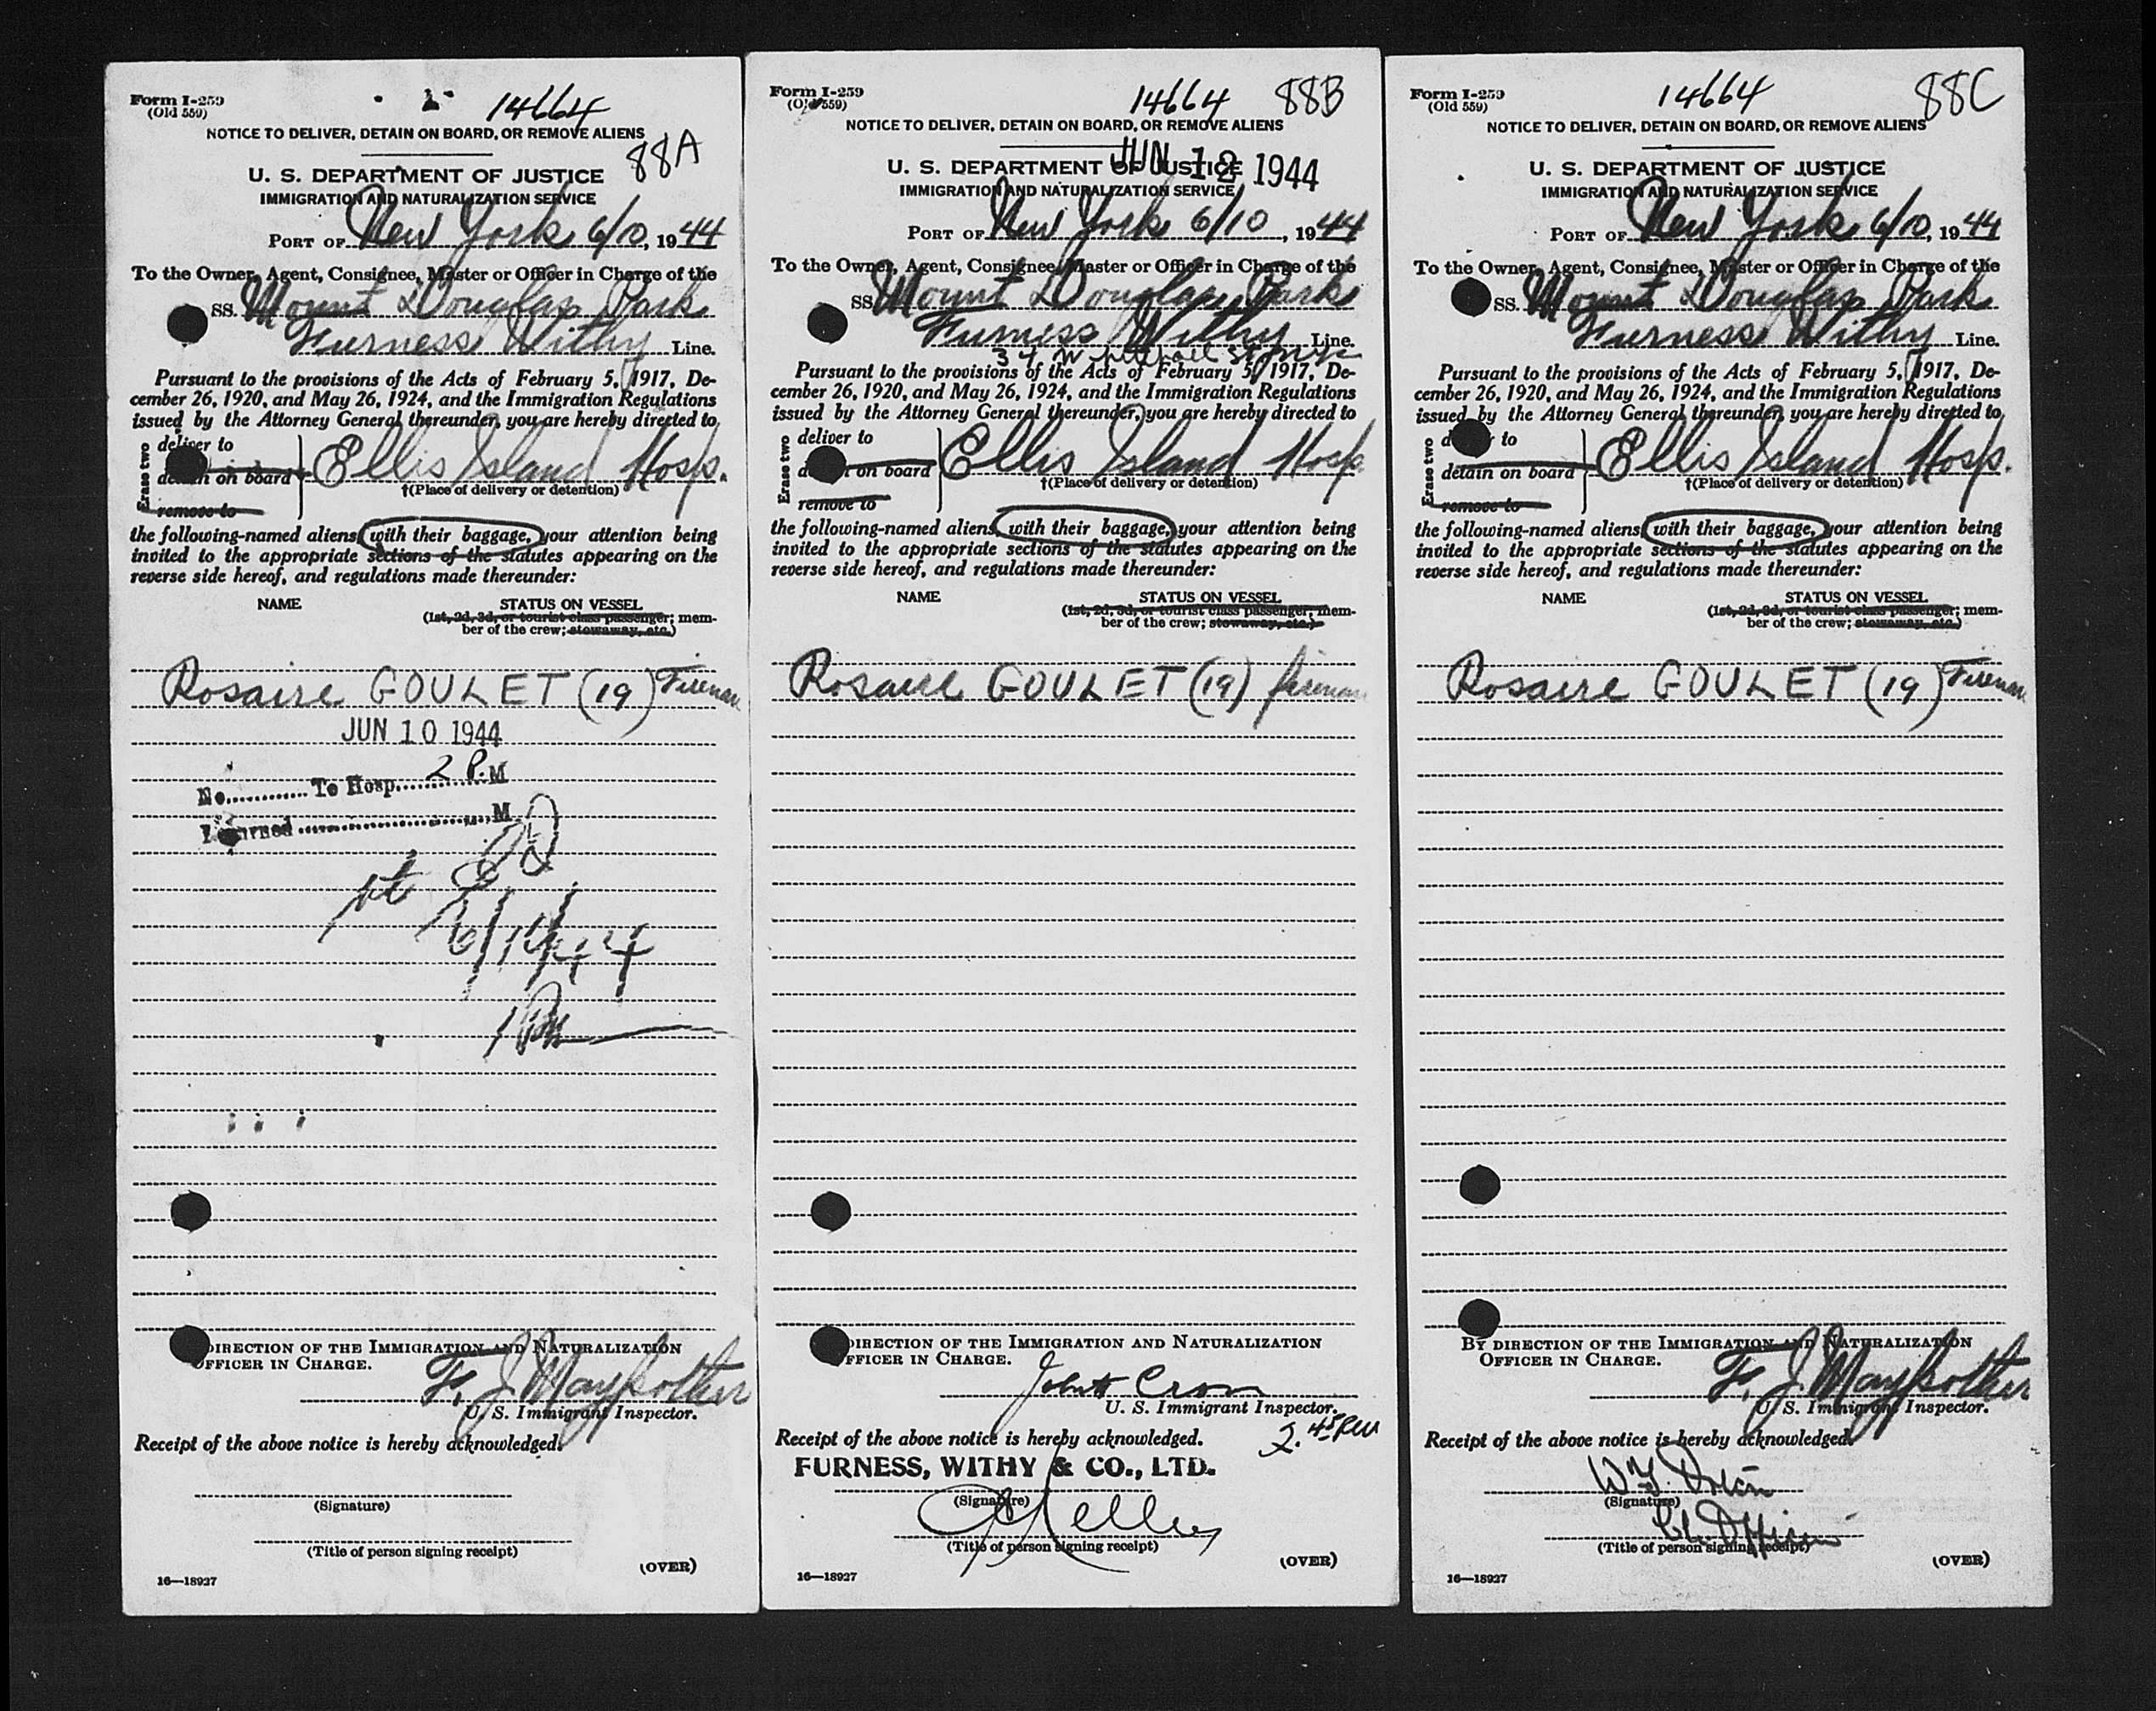 Form I-259
(Old 559)
14664
NOTICE TO DELIVER, DETAIN ON BOARD, OR REMOVE ALIENS
88A
U. S. DEPARTMENT OF JUSTICE
IMMIGRATION AND NATURALIZATION SERVICE
PORT OF New York 6/10, 1944
To the Owner, Agent, Consignee, Master or Officer in Charge of the
SS. Mount Douglas Park
Furness Withy Line.
Pursuant to the provisions of the Acts of February 5, 1917, De-
cember 26, 1920, and May 26, 1924, and the Immigration Regulations
issued by the Attorney General thereunder, you are hereby directed to
Erase two
deliver to
detain on board
remove to
Ellis Island Hosp.
†(Place of delivery or detention)
the following-named aliens, with their baggage, your attention being
invited to the appropriate sections of the statutes appearing on the
reverse side hereof, and regulations made thereunder:
NAME STATUS ON VESSEL
(1st, 2d, 3d, or tourist class passenger; mem-
ber of the crew; stowaway, etc.)
Rosaire GOULET (19) Fireman
JUN 10 1944
No. To Hosp. 2 P. M
Returned M
6/14/44
DIRECTION OF THE IMMIGRATION AND NATURALIZATION
OFFICER IN CHARGE.
F. J. Maybother
U. S. Immigrant Inspector.
Receipt of the above notice is hereby acknowledged.
(Signature)
(Title of person signing receipt)
(OVER)
16—18927
Form I-259
(Old 559)
14664 88B
NOTICE TO DELIVER, DETAIN ON BOARD, OR REMOVE ALIENS
JUN 12 1944
U. S. DEPARTMENT OF JUSTICE
IMMIGRATION AND NATURALIZATION SERVICE
PORT OF New York 6/10, 1944
To the Owner, Agent, Consignee, Master or Officer in Charge of the
SS. Mount Douglas Park
Furness Withy Line.
34 Whitehall St NYC
Pursuant to the provisions of the Acts of February 5, 1917, De-
cember 26, 1920, and May 26, 1924, and the Immigration Regulations
issued by the Attorney General thereunder, you are hereby directed to
Erase two
deliver to
detain on board
remove to
Ellis Island Hosp.
†(Place of delivery or detention)
the following-named aliens, with their baggage, your attention being
invited to the appropriate sections of the statutes appearing on the
reverse side hereof, and regulations made thereunder:
NAME STATUS ON VESSEL
(1st, 2d, 3d, or tourist class passenger; mem-
ber of the crew; stowaway, etc.)
Rosaire GOULET (19) fireman
DIRECTION OF THE IMMIGRATION AND NATURALIZATION
OFFICER IN CHARGE.
John A Cron
U. S. Immigrant Inspector.
2.45 PM
Receipt of the above notice is hereby acknowledged.
FURNESS, WITHY & CO., LTD.
(Signature)
Kelly
(Title of person signing receipt)
(OVER)
16—18927
Form I-259
(Old 559)
14664 88C
NOTICE TO DELIVER, DETAIN ON BOARD, OR REMOVE ALIENS
U. S. DEPARTMENT OF JUSTICE
IMMIGRATION AND NATURALIZATION SERVICE
PORT OF New York 6/10, 1944
To the Owner, Agent, Consignee, Master or Officer in Charge of the
SS. Mount Douglas Park
Furness Withy Line.
Pursuant to the provisions of the Acts of February 5, 1917, De-
cember 26, 1920, and May 26, 1924, and the Immigration Regulations
issued by the Attorney General thereunder, you are hereby directed to
Erase two
deliver to
detain on board
remove to
Ellis Island Hosp.
†(Place of delivery or detention)
the following-named aliens, with their baggage, your attention being
invited to the appropriate sections of the statutes appearing on the
reverse side hereof, and regulations made thereunder:
NAME STATUS ON VESSEL
(1st, 2d, 3d, or tourist class passenger; mem-
ber of the crew; stowaway, etc.)
Rosaire GOULET (19) Fireman
BY DIRECTION OF THE IMMIGRATION AND NATURALIZATION
OFFICER IN CHARGE.
F. J. Maybother
U. S. Immigrant Inspector.
Receipt of the above notice is hereby acknowledged.
(Signature)
Ch. Officer
(Title of person signing receipt)
(OVER)
16—18927